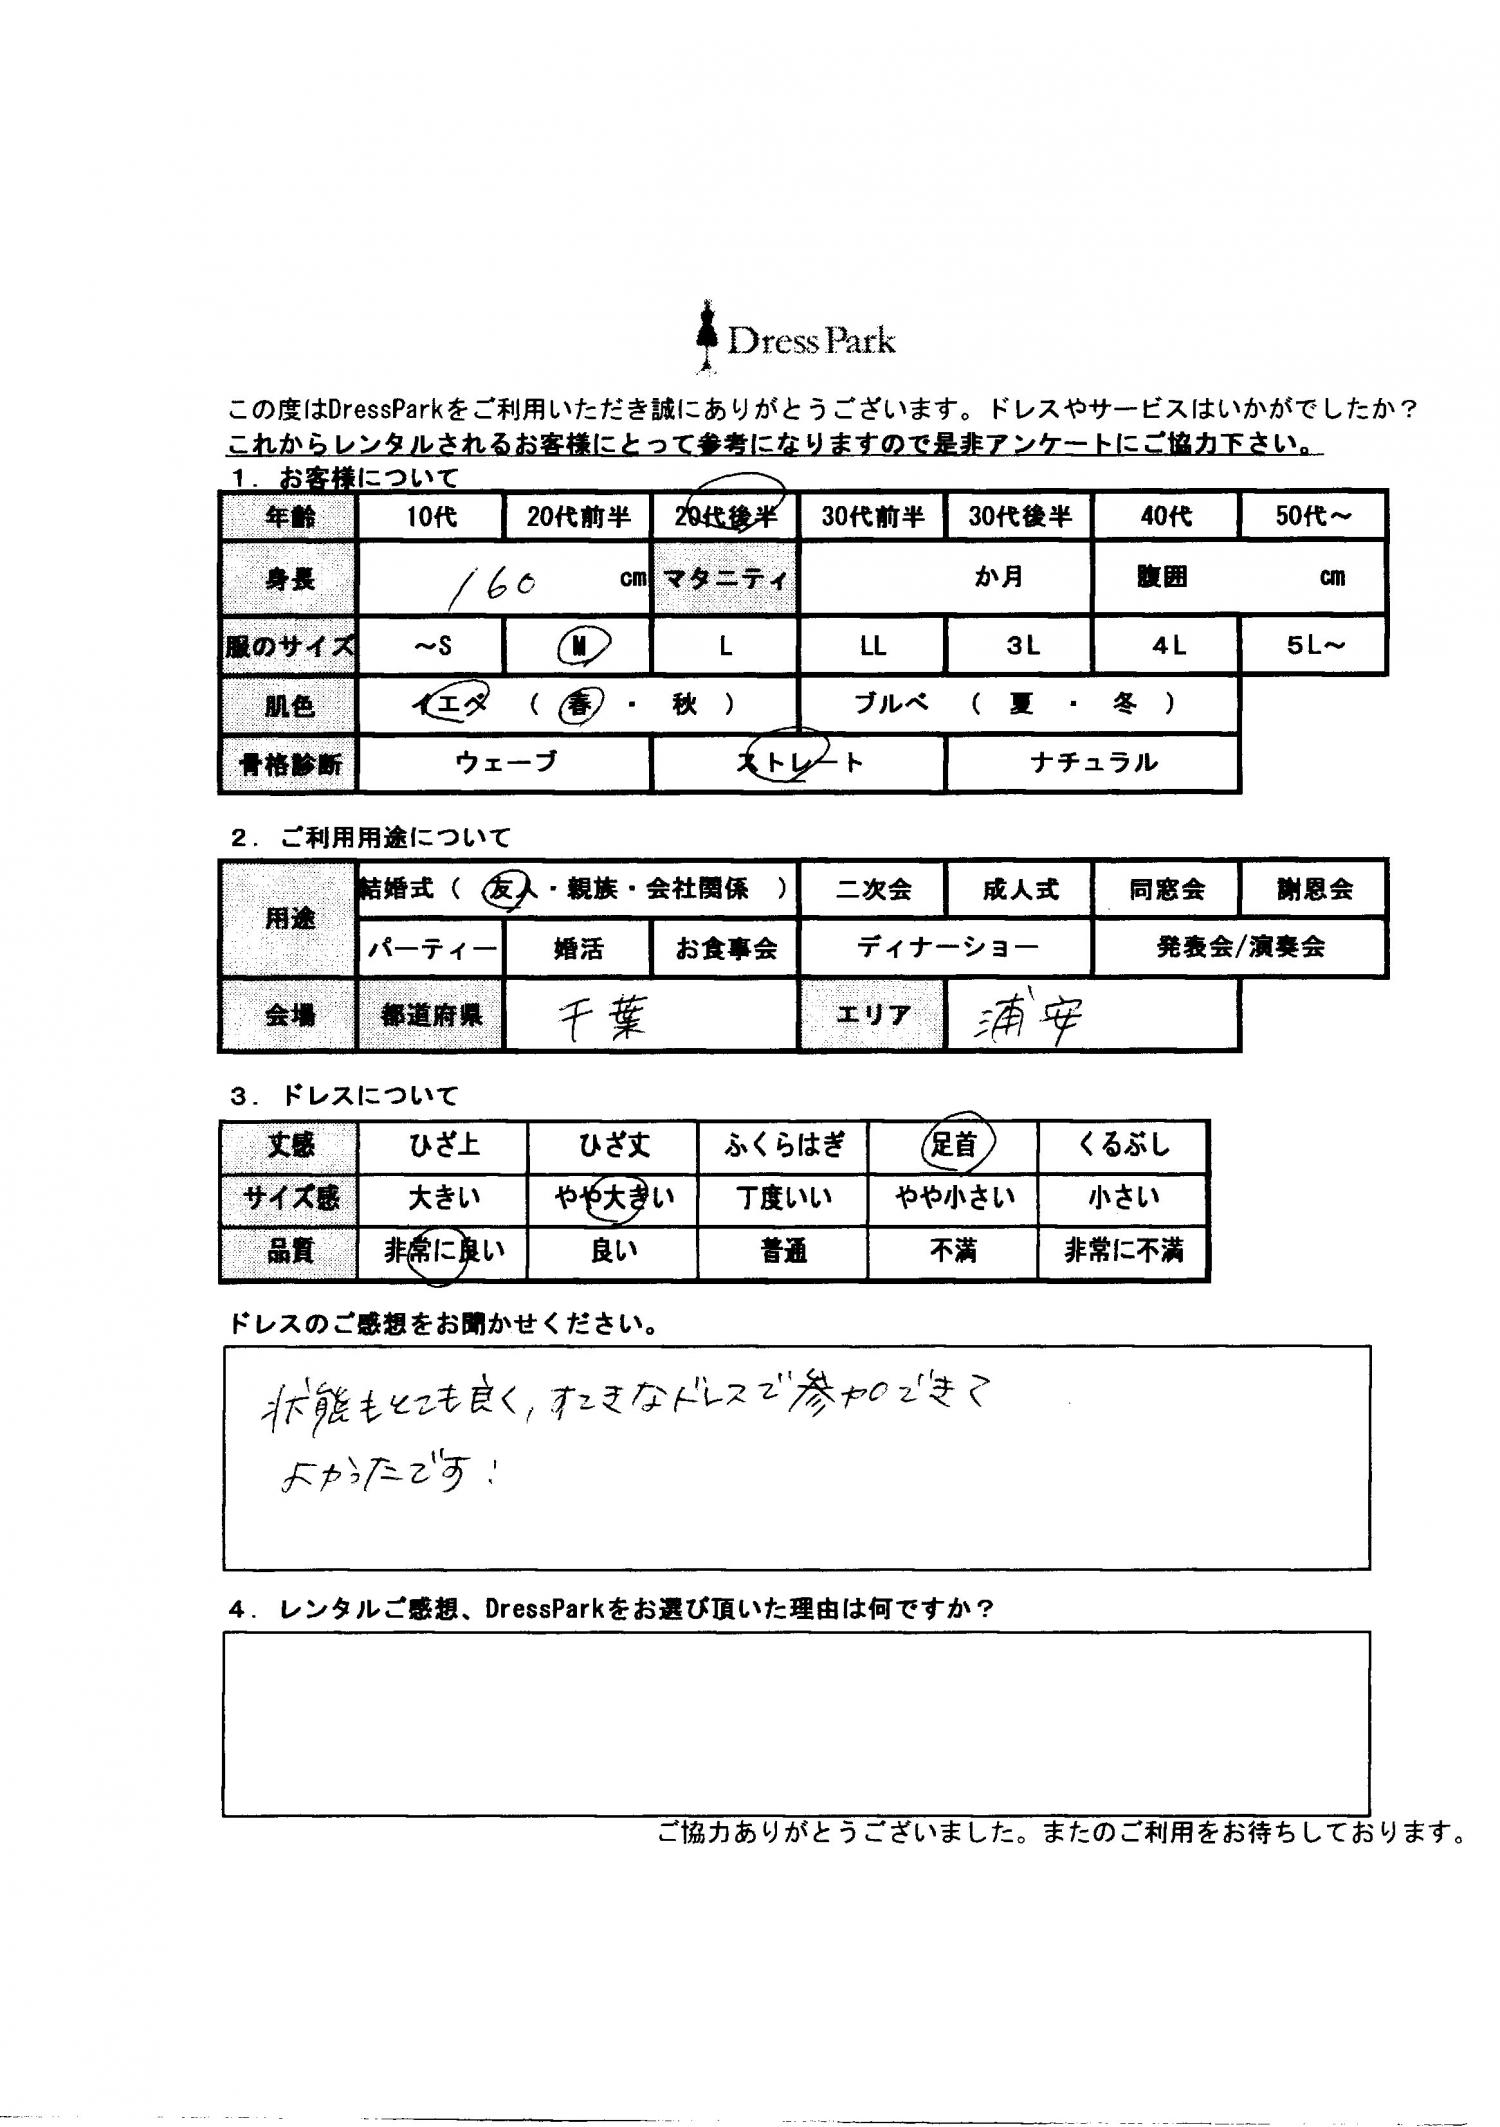 Dress Park
この度はDressParkをご利用いただき誠にありがとうございます。ドレスやサービスはいかがでしたか？
これからレンタルされるお客様にとって参考になりますので是非アンケートにご協力下さい。
１．お客様について
年齢 10代 20代前半 20代後半 30代前半 30代後半 40代 50代～
身長 160 cm マタニティ か月 腹囲 cm
服のサイズ ～S M L LL 3L 4L 5L～
肌色 イエベ （ 春 ・ 秋 ） ブルベ （ 夏 ・ 冬 ）
骨格診断 ウェーブ ストレート ナチュラル
２．ご利用用途について
用途 結婚式（ 友人・親族・会社関係 ） 二次会 成人式 同窓会 謝恩会
パーティー 婚活 お食事会 ディナーショー 発表会/演奏会
会場 都道府県 千葉 エリア 浦安
３．ドレスについて
丈感 ひざ上 ひざ丈 ふくらはぎ 足首 くるぶし
サイズ感 大きい やや大きい 丁度いい やや小さい 小さい
品質 非常に良い 良い 普通 不満 非常に不満
ドレスのご感想をお聞かせください。
状態もとても良く, すてきなドレスで参加できて
よかったです！
４．レンタルご感想、DressParkをお選び頂いた理由は何ですか？
ご協力ありがとうございました。またのご利用をお待ちしております。